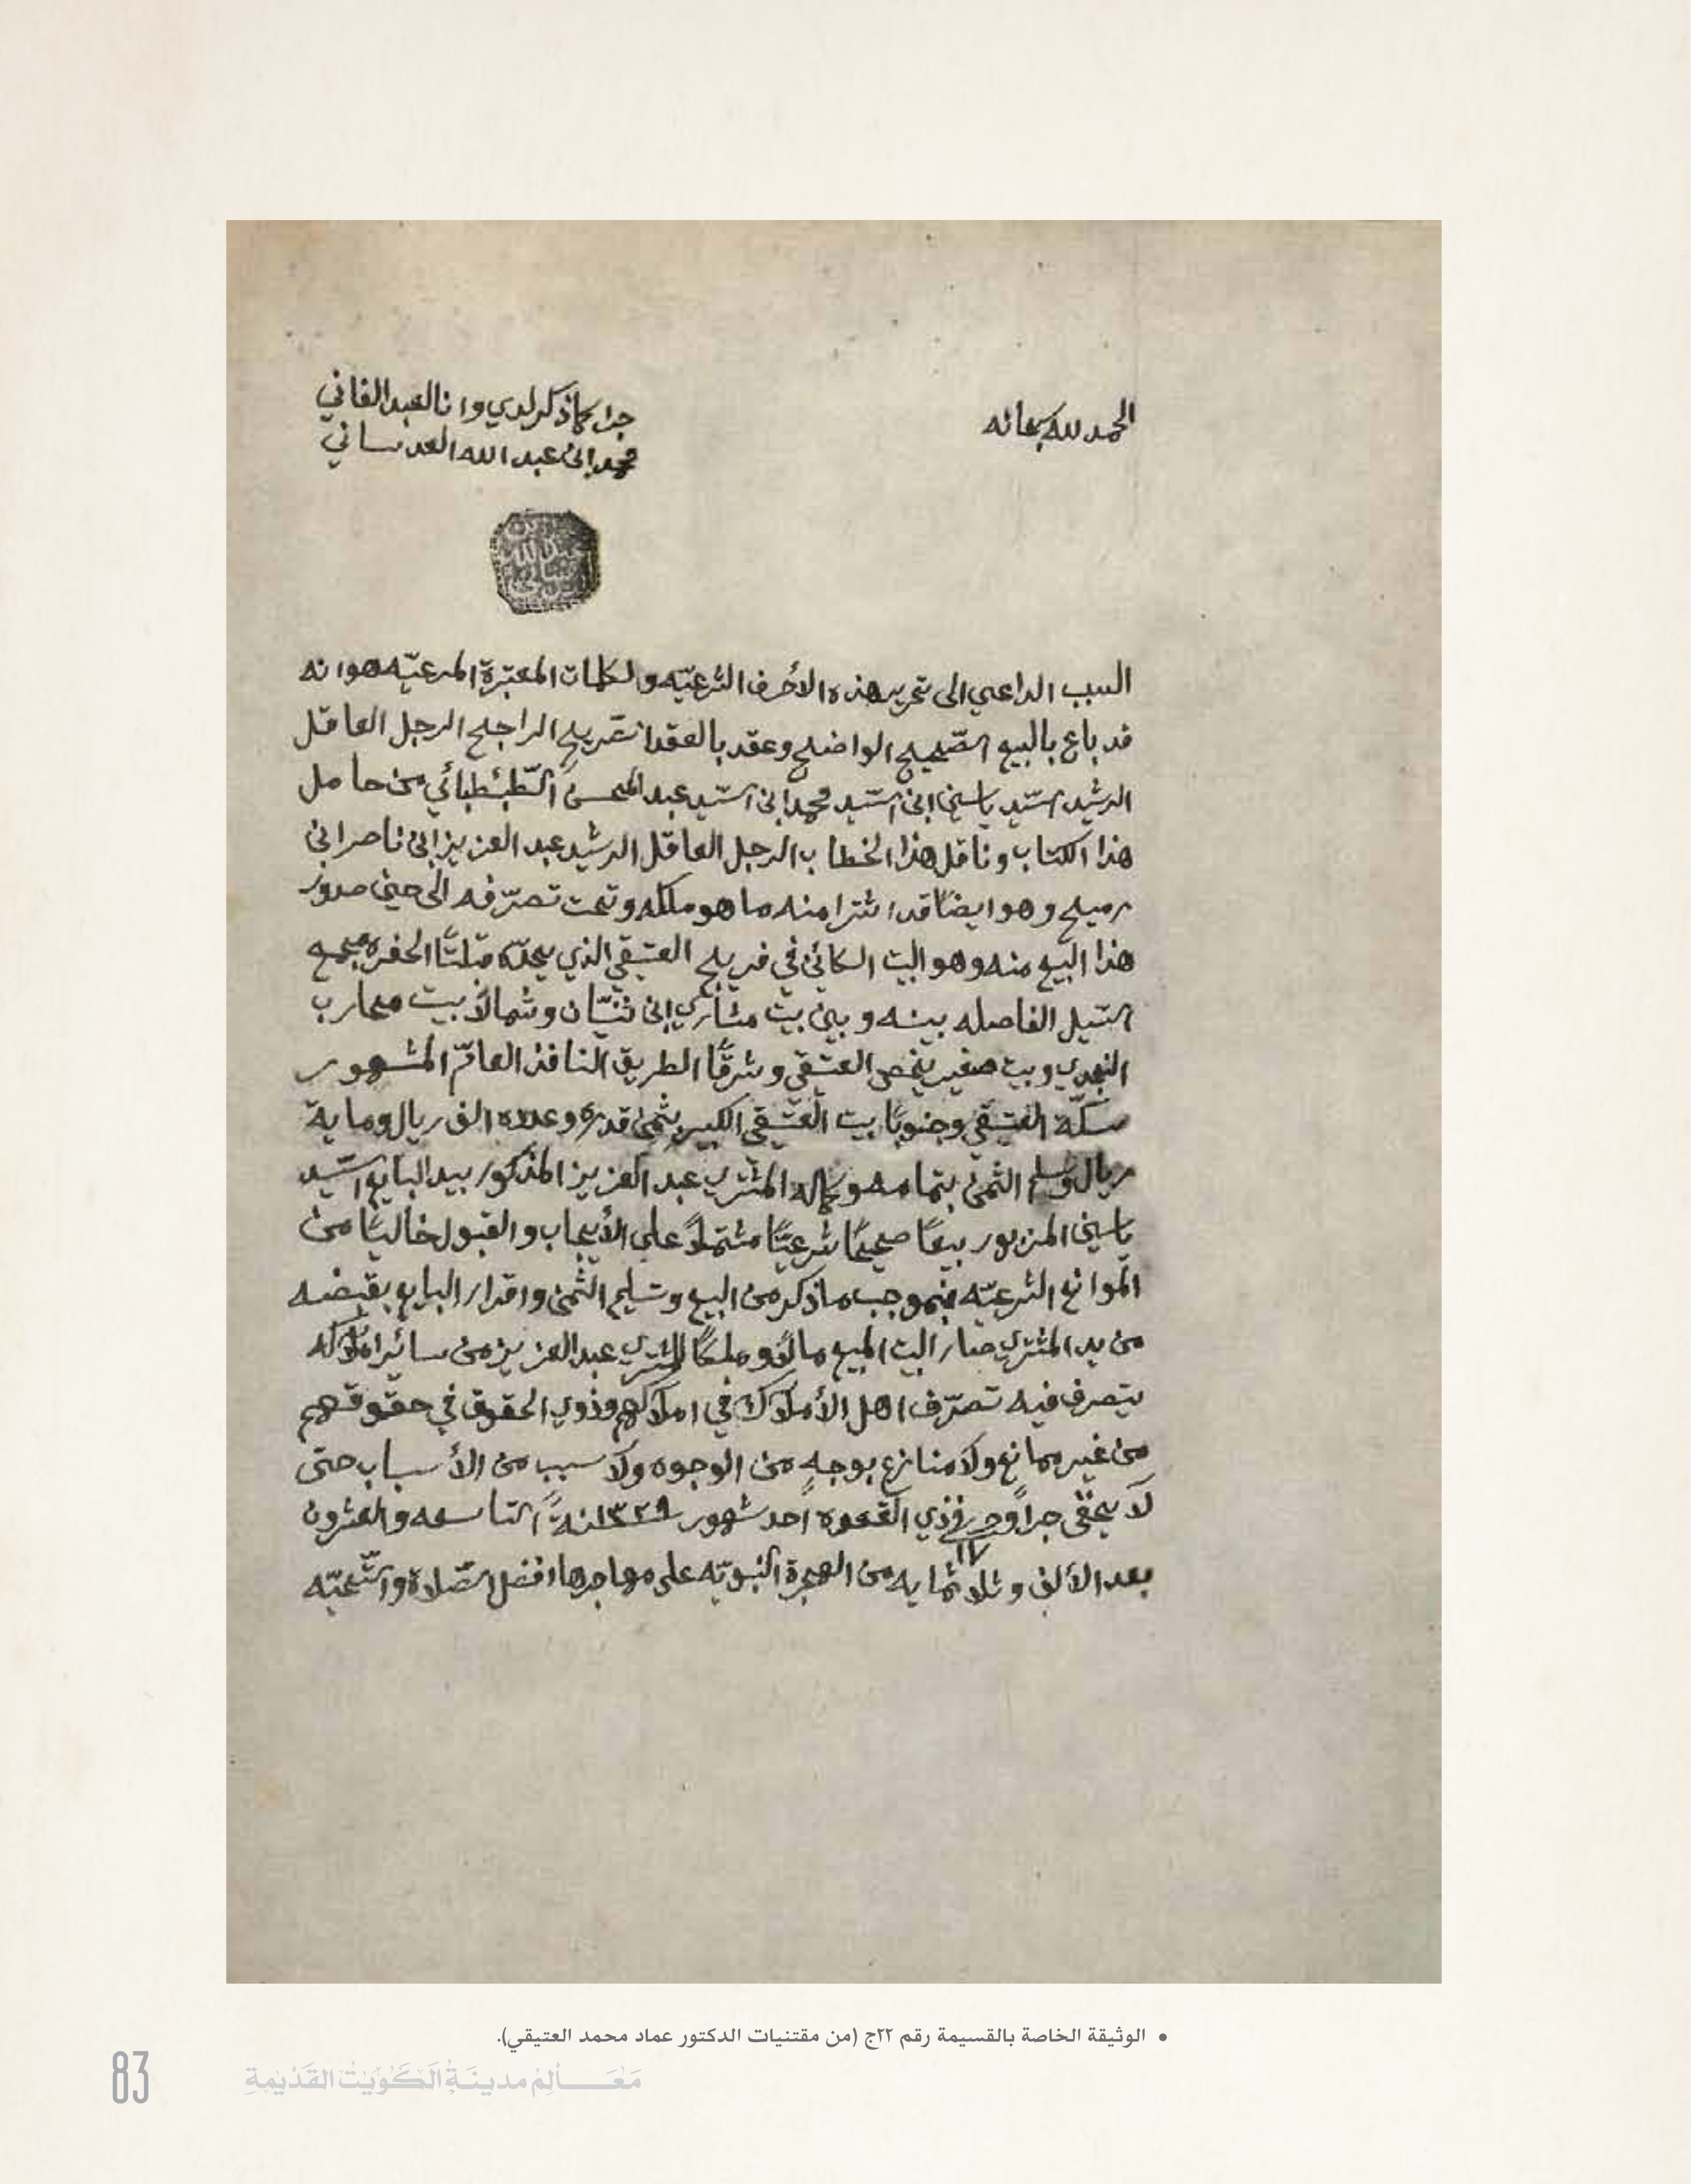 الحمد لله سبحانه
جرا كما ذكر لدي وانا العبد الفاني
محمد ابن عبد الله العدساني
السبب الداعي الى تحرير هذه الأحرف الشرعيّه والكلمات المعتبرة المرعيّه هو انه
قد باع بالبيع الصّحيح الواضح وعقد بالعقد الصّريح الراجح الرجل العاقل
الرشيد السّيد ياسين ابن السّيد محمد ابن السّيد عبد المحسن الطّبطبائي من حامل
هذا الكتاب وناقل هذا الخطاب الرجل العاقل الرشيد عبد العزيز ابن ناصر ابن
رميح وهو ايضًا قد اشترا منه ما هو ملكه وتحت تصرّفه الى حين صدور
هذا البيع منه وهو البيت الكائن في فريج العتيقي الذي يحدّه قبلتًا الحفره مجمع
السّيل الفاصله بينه وبين بيت مشاري ابن ثنيّان وشمالًا بيت محارب
النجدي وبيت صغير يخص العتيقي وشرقًا الطريق النافذ العامّ المشهور
سكّة العتيقي وجنوبًا بيت العتيقي الكبير بثمن قدره وعدده الف ريال وماية
ريال وسلم الثمن بتمامه وكماله المشتري عبد العزيز المذكور بيد البايع السّيد
ياسين المزبور بيعًا صحيحًا شرعيًّا مشتملًا على الأيجاب والقبول خاليًا من
الموانع الشرعيّه فبموجب ما ذكر من البيع وتسليم الثمن واقرار البايع بقبضه
من يد المشتري صار البيت المبيع مالًا وملكًا للمشتري عبد العزيز من سائر املاكه
يتصرف فيه تصرّف اهل الأملاك في املاكهم وذوي الحقوق في حقوقهم
من غير ممانع ولا منازع بوجهٍ من الوجوه ولا سبب من الأسباب حتى
لا يخفى جرا وحرر في ١٧ ذي القعده احد شهور سنة ١٣٢٩ التاسعه والعشرون
بعد الألف وثلاثمايه من الهجرة النبويّه على مهاجرها افضل الصّلاة والتّحيّه
• الوثيقة الخاصة بالقسيمة رقم ٢٢ج (من مقتنيات الدكتور عماد محمد العتيقي).
83
مَعَالِم مدينَةُ الكُوَيتْ القَدْيمةِ